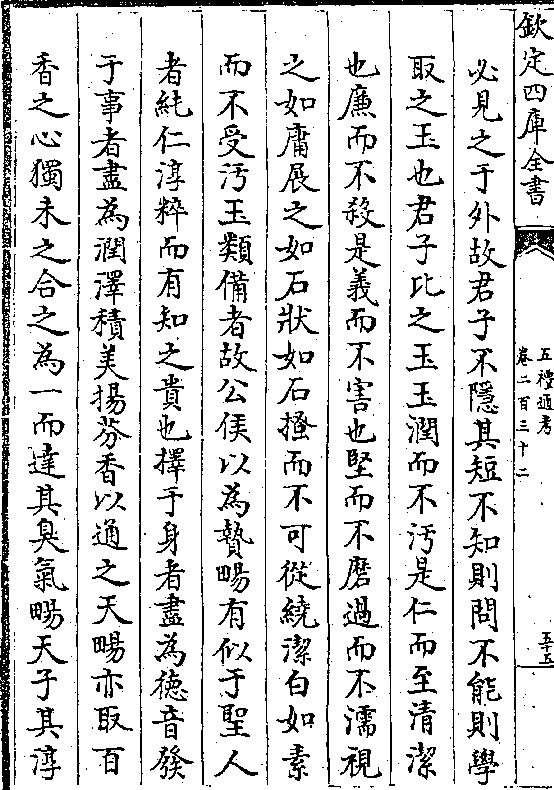 欽定四庫全書
五禮通考
卷二百三十二
五十五
必見之于外故君子不隱其短不知則問不能則學
取之玉也君子比之玉玉潤而不汚是仁而至清潔
也廉而不殺是義而不害也堅而不磨過而不濡視
之如庸展之如石狀如石搔而不可從繞潔白如素
而不受汚玉類備者故公侯以為贄暢有似于聖人
者純仁淳粹而有知之貴也擇于身者盡為德音發
于事者盡為潤澤積美揚芬香以通之天暢亦取百
香之心獨末之合之為一而達其臭氣暢天子其淳